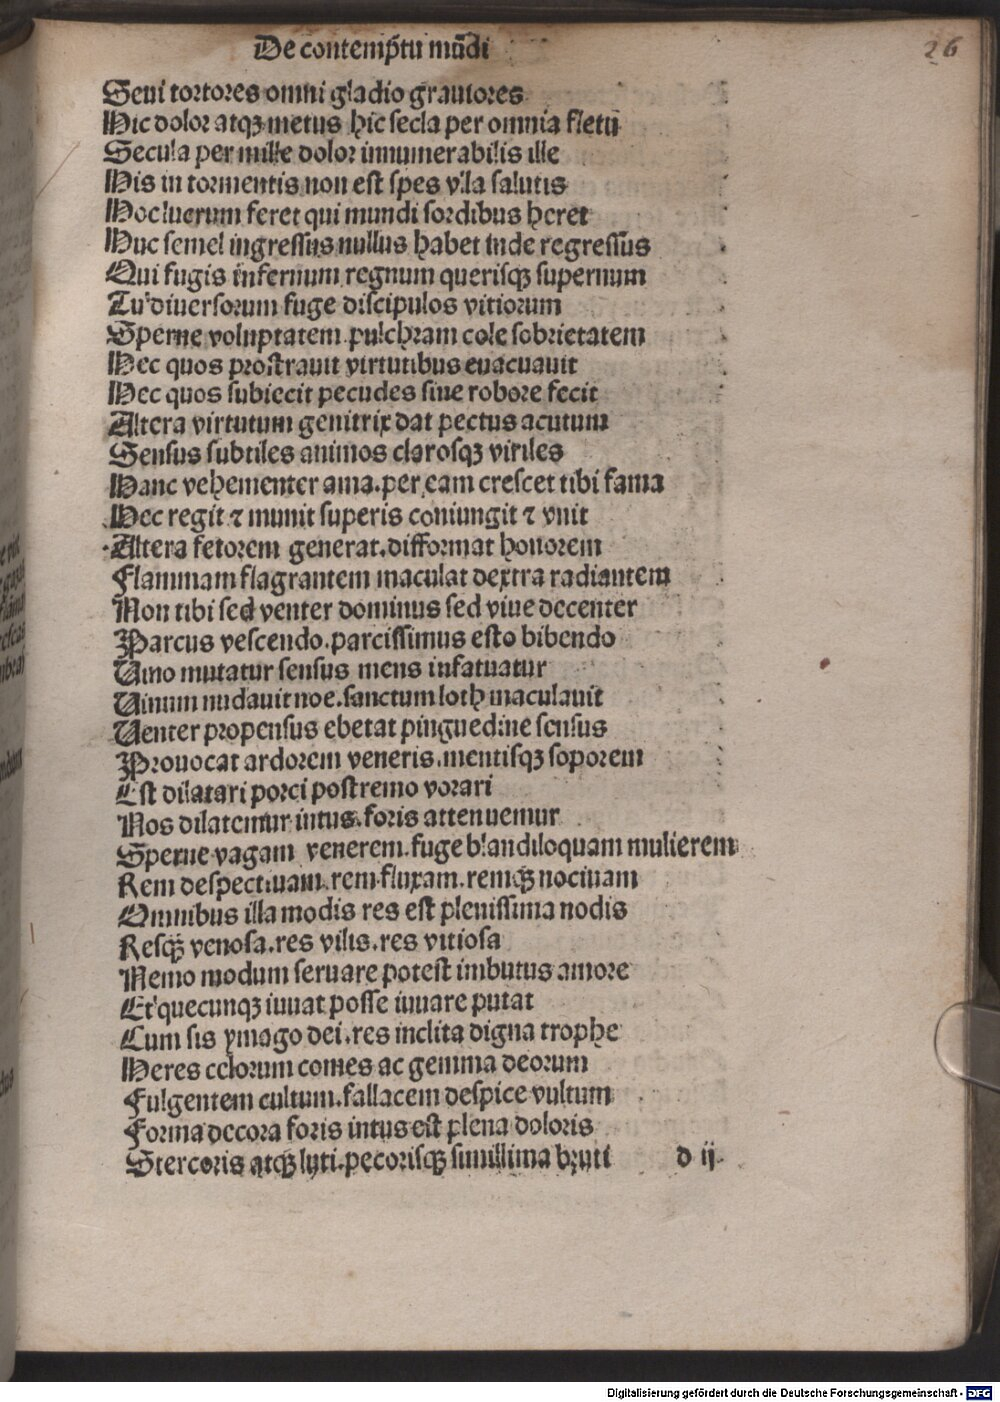 De contemptu mūdi
26
Seui tortores omni gladio grauiores
Hic dolor atqꝫ metus hic secla per omnia fletū
Secula per mille dolor innumerabilis ille
His in tormentis non est spes vlla salutis
Hoc lucrum feret qui mundi sordibus heret
Huc semel ingressus nullus habet inde regressus
Qui fugis infernum regnum querisqꝫ supernum
Tu diuersorum fuge discipulos vitiorum
Sperne voluptatem pulchram cole sobrietatem
Hec quos prostrauit virtutibus euacuauit
Hec quos subiecit pecudes siue robore fecit
Altera virtutum genitrix dat pectus acutum
Sensus subtiles animos clarosqꝫ viriles
Hanc vehementer ama.per eam crescet tibi fama
Hec regit ⁊ munit superis coniungit ⁊ vnit
Altera fetorem generat.difformat honorem
Flammam flagrantem maculat dextra radiantem
Non tibi sed venter dominus sed viue decenter
Parcus vescendo.parcissimus esto bibendo
Uino mutatur sensus mens infatuatur
Uinum nudauit noe.sanctum loth maculauit
Uenter propensus ebetat pinguedine sensus
Prouocat ardorem veneris.mentisqꝫ soporem
Est dilatari porci postremo vorari
Nos dilatemur intus.foris attenuemur
Sperne vagam venerem.fuge blandiloquam mulierem
Rem despectiuam.rem fluxam.remqꝫ nociuam
Omnibus illa modis res est plenissima nodis
Resqꝫ venosa.res vilis.res vitiosa
Nemo modum seruare potest imbutus amore
Et quecunqꝫ iuuat posse iuuare putat
Cum sis ymago dei.res inclita digna trophe
Heres celorum comes ac gemma deorum
Fulgentem cultum.fallacem despice vultum
Forma decora foris intus est plena doloris
Stercoris atqꝫ luti.pecorisqꝫ simillima bruti d ij
Digitalisierung gefördert durch die Deutsche Forschungsgemeinschaft - DFG